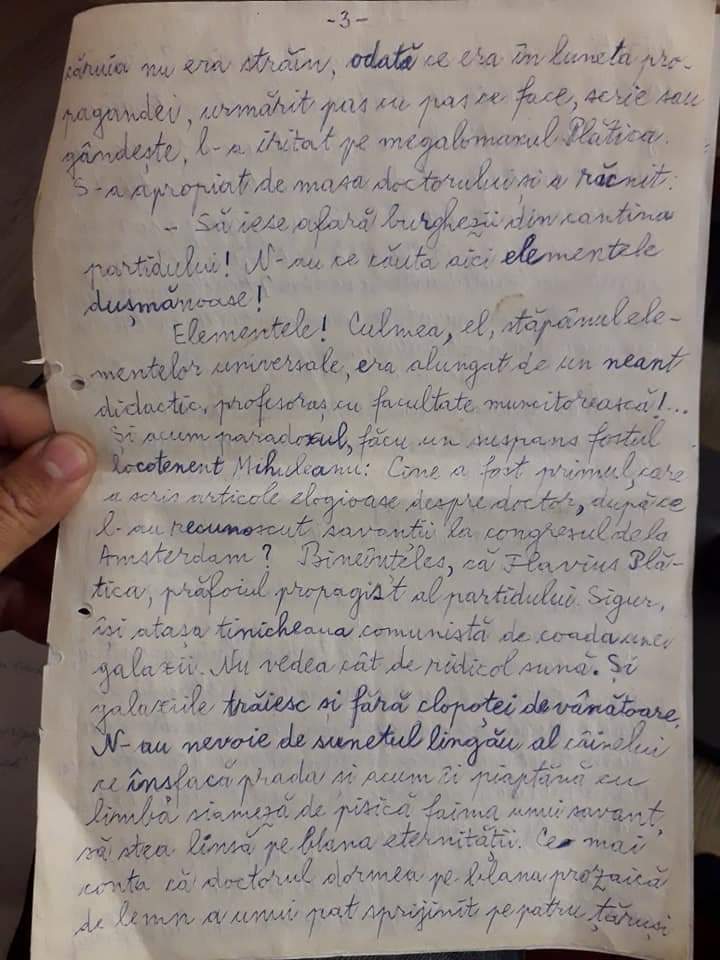 -3-
căruia nu era străin, odată ce era în luneta pro-
pagandei, urmărit pas cu pas ce face, scrie sau
gândește, l-a iritat pe megalomanul Plătica.
S-a apropiat de masa doctorului și a răcnit:
- Să iese afară burghezii din cantina
partidului! N-au ce căuta aici elementele
dușmănoase!
Elementele! Culmea, el, stăpânul ele-
mentelor universale, era alungat de un neant
didactic, profesoraș cu facultate muncitorească!...
Și acum paradoxul, făcu un suspans fostul
locotenent Mihuleanu: Cine a fost primul, care
a scris articole elogioase despre doctor, după ce
l-au recunoscut savanții la congresul de la
Amsterdam? Bineînțeles, că Flavius Plă-
tica, prăfoiul propagist al partidului. Sigur,
își atașa tinicheaua comunistă de coada unei
galaxii. Nu vedea cât de ridicol sună. Și
galaxiile trăiesc și fără clopoței de vânătoare.
N-au nevoie de sunetul lingău al câinelui
ce înșfacă prada și acum îi piaptănă cu
limbă siameză de pisică faima unui savant,
să stea linsă pe blana eternității. Ce mai
conta că doctorul dormea pe blana prozaică
de lemn a unui pat sprijinit pe patru țăruși